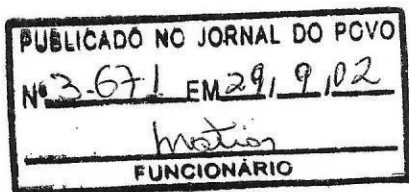 PUBLICADO NO JORNAL DO POVO
Nº 3.671 EM 29, 9, 02
FUNCIONÁRIO